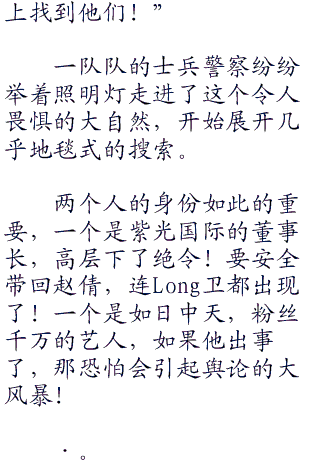 上找到他们！”
一队队的士兵警察纷纷
举着照明灯走进了这个令人
畏惧的大自然，开始展开几
乎地毯式的搜索。
两个人的身份如此的重
要，一个是紫光国际的董事
长，高层下了绝令！要安全
带回赵倩，连Long卫都出现
了！一个是如日中天，粉丝
千万的艺人，如果他出事
了，那恐怕会引起舆论的大
风暴！
·。